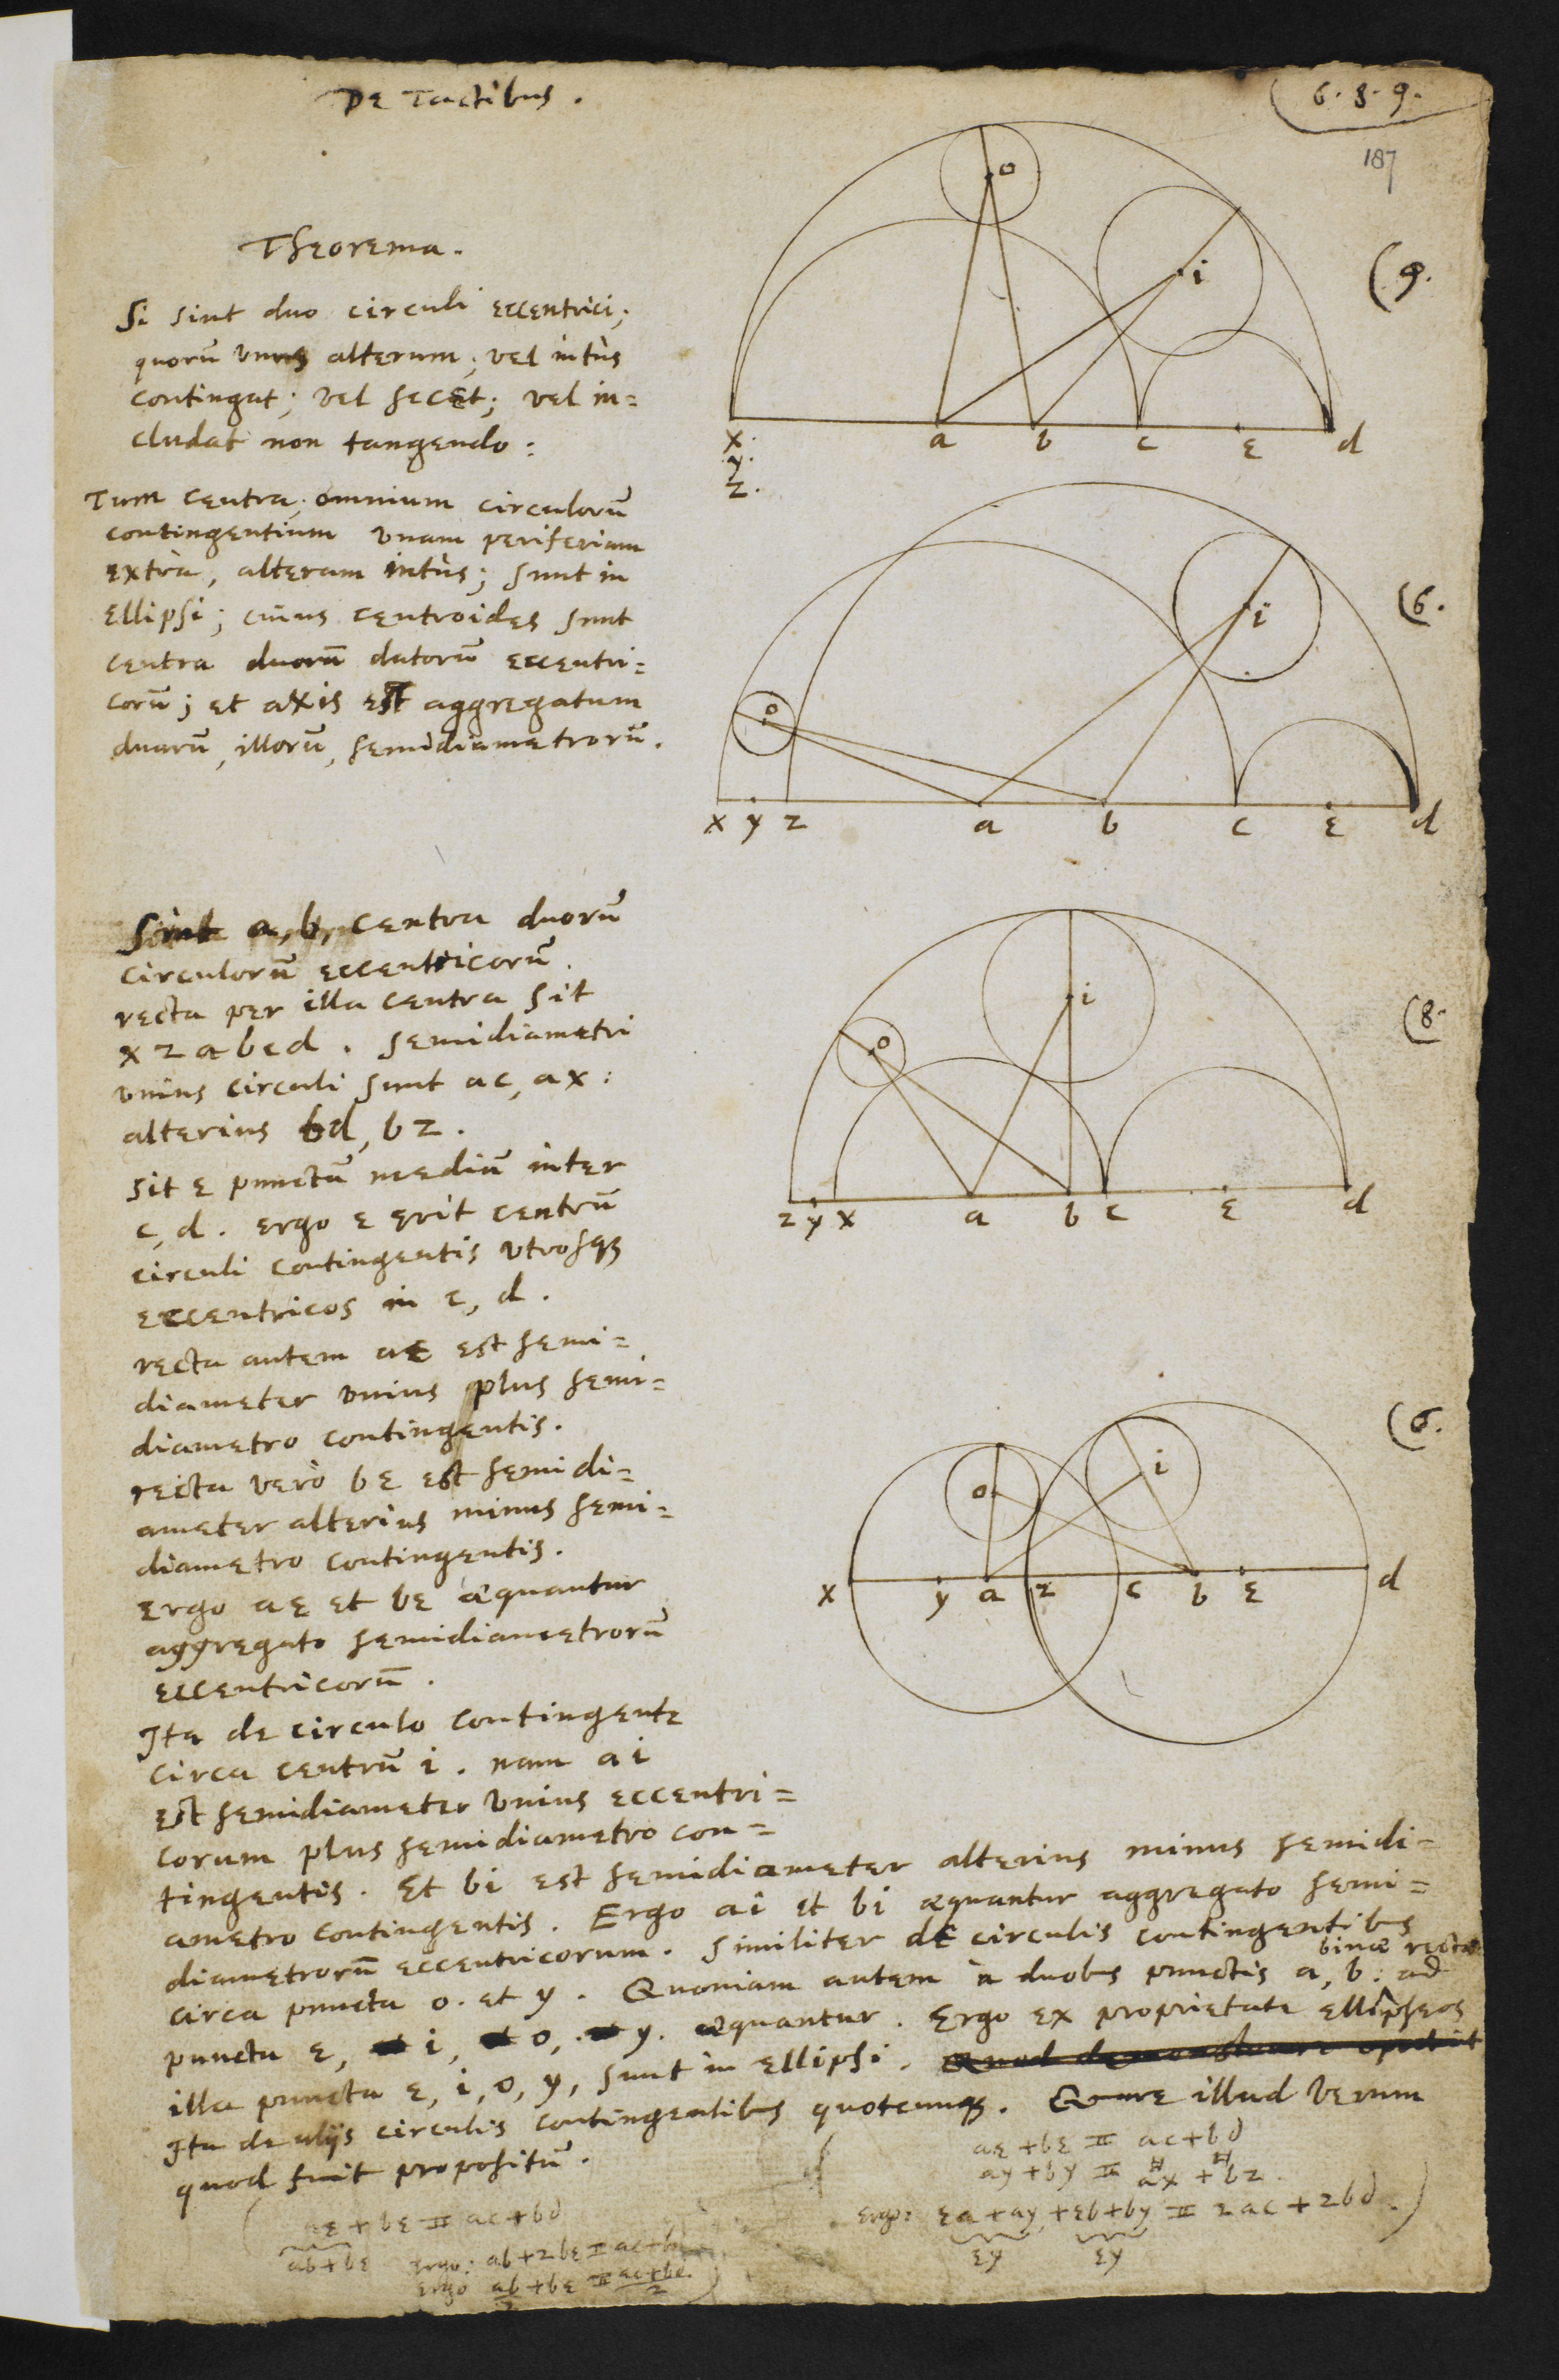 De Tactibus.
6. 8. 9.
187
Theorema.
Si sint duo circuli eccentrici;
quorū unus alterum; vel intùs
contingat; vel secet; vel in=
cludat non tangendo:
Tum centra, omnium circulorū
contingentium vnam periferiam
extrà, alteram intùs; sunt in
ellipsi; cuius centroides sunt
centra duorū datorū eccentri=
corū; et axis est aggregatum
duarū, illorū, semidiametrorū.
Sint a, b, centra duorū
circulorū eccentricorū.
recta per illa centra sit
x z a b c d. semidiametri
vnius circuli sunt ac, ax:
alterius bd, bz.
sit e punctū mediū inter
c, d. ergo e erit centrū
circuli contingentis vtrosqȝ
eccentricos in c, d.
recta autem ae est semi=
diameter vnius plus semi=
diametro contingentis.
recta verò be est semidi=
ameter alterius minus semi=
diametro contingentis.
Ergo ae et be æquantur
aggregato semidiametrorū
eccentricorū.
Ita de circulo contingente
circa centrū i. nam ai
est semidiameter vnius eccentri=
corum plus semidiametro con=
tingentis. Et bi est semidiameter alterius minus semidi=
ametro contingentis. Ergo ai et bi æquantur aggregato semi=
diametrorū eccentricorum. Similiter de circulis contingentibus
circa puncta o. et y. Quoniam autem a duobus punctis a, b: binæ rectæ ad
puncta e, i, o, y. æquantur. Ergo ex proprietate ellipseos
illa puncta e, i, o, y, sunt in ellipsi. Quod demonstrare oportuit
Ita de alijs circulis contingentibus quotcunqȝ. Quare illud verum
quod fuit propositū.
ae + be = ac + bd
ab + be
ergo: ab + 2be = ac + bd
ergo ab/2 + be = ac + bd/2
ae + be = ac + bd
ay + by = ax + bz.
ergo: ea + ay, + eb + by = 2ac + 2bd.
ey ey
o
i
(9.
x.
y.
z.
a b c e d
o
i
(6.
x y z a b c e d
o
i
(8.
z y x a b c e d
o
i
(6.
x y a z c b e d